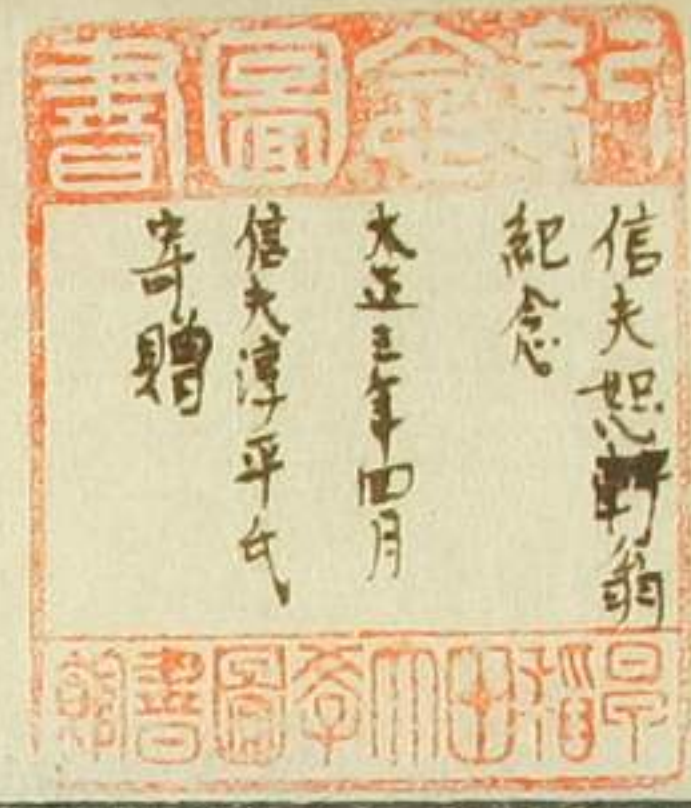 紀念圖書
信夫恕軒翁
紀念
大正三年四月
信夫淳平氏
寄贈
早稲田大学圖書館